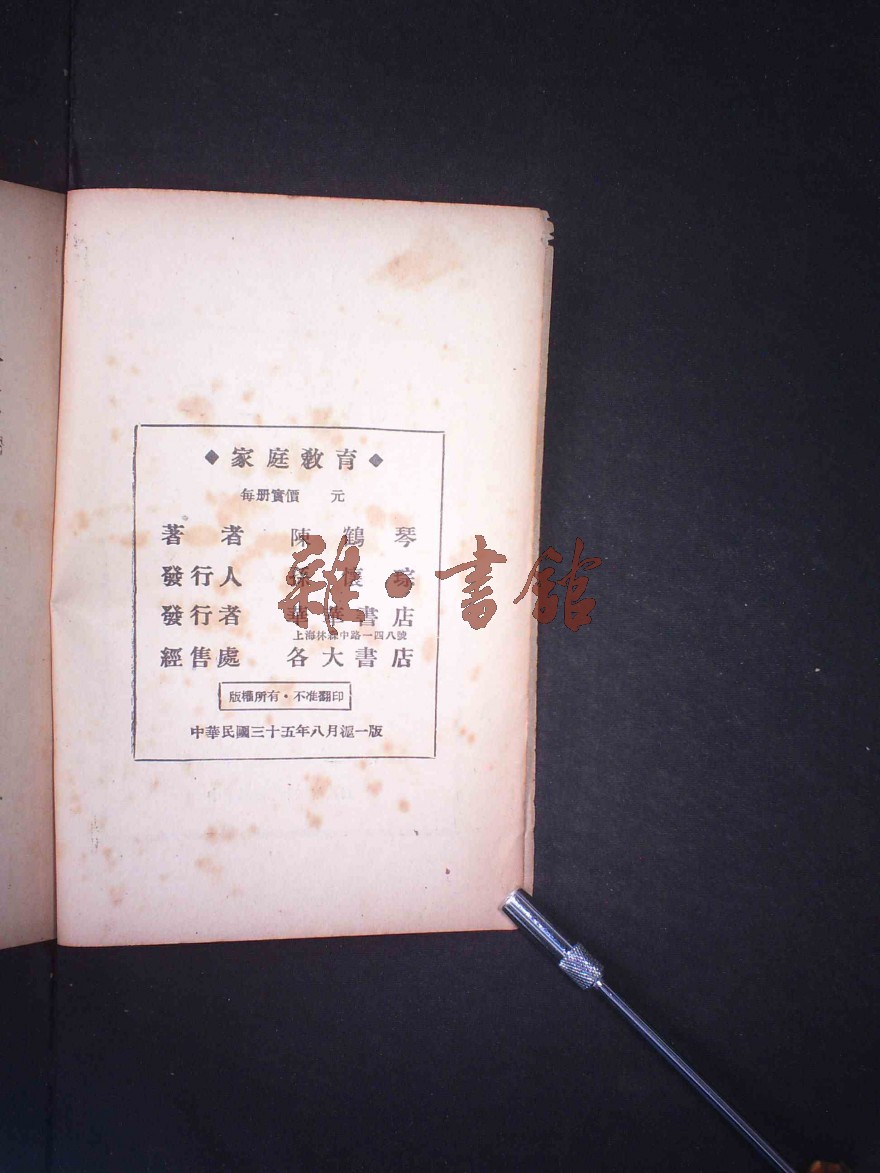 ◆家庭教育◆
每册實價 元
著者 陳鶴琴
發行人 孫懷琮
發行者 華華書店
上海林森中路一四八號
經售處 各大書店
版權所有·不准翻印
中華民國三十五年八月滬一版
雜·書館